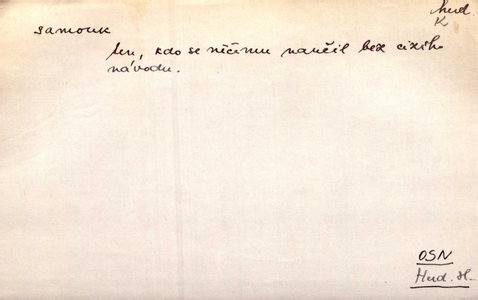 Hud.
K
samouk
ten, kdo se něčemu naučil bez cizího
návodu.
OSN
Hud. H.